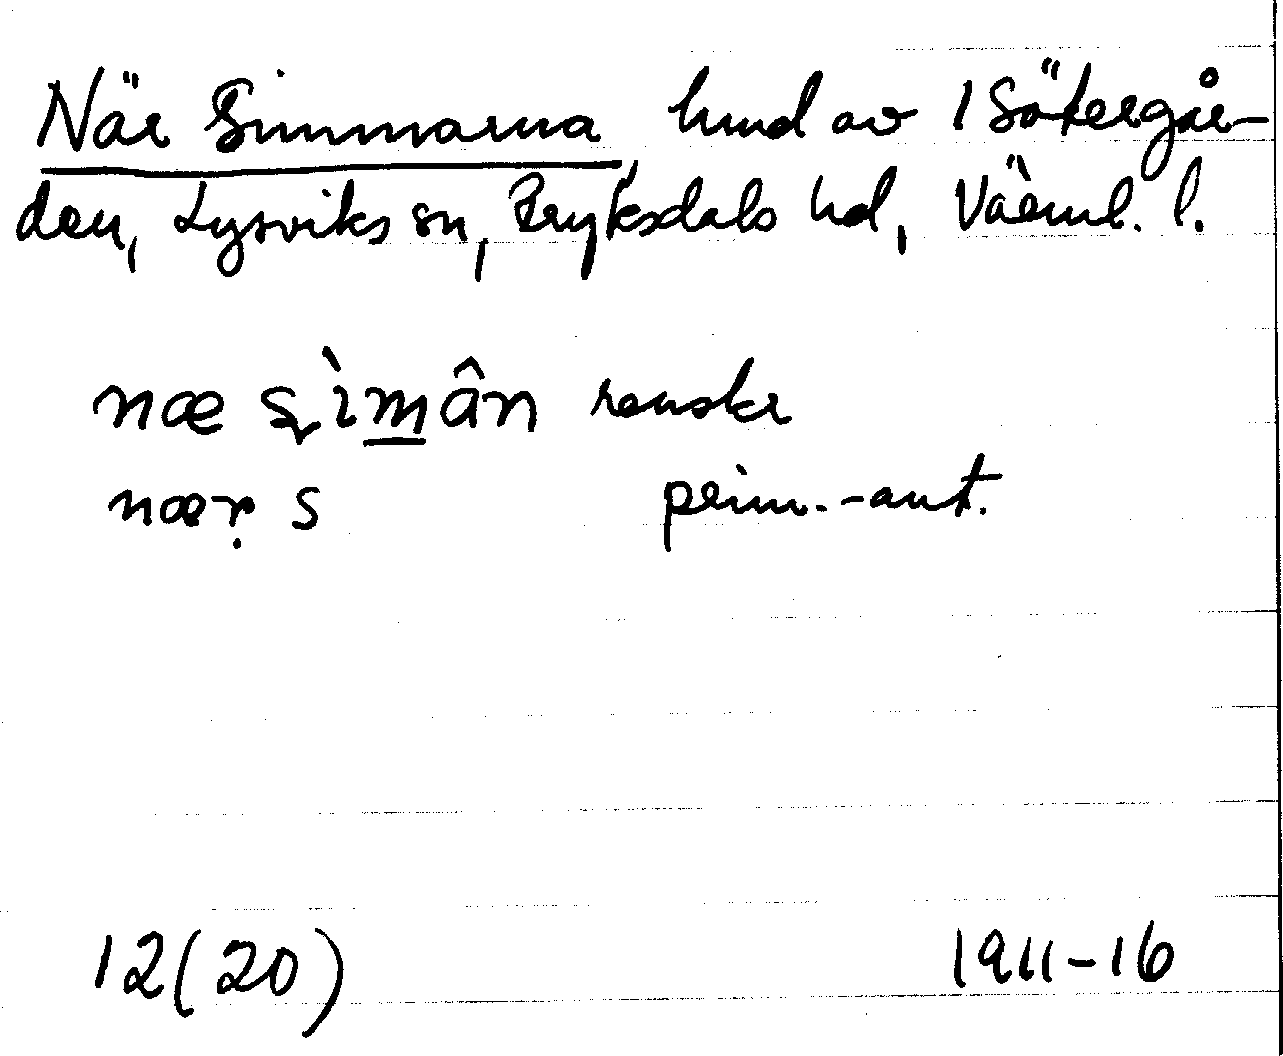 När Simmarna, hmd av 1 Sätergår-
den, Lysviks sn, Fryksdals hd, Värml. l.
næ s̨ìm̲ân renskr
næṛ s prim.-ant.
12(20) 1911-16